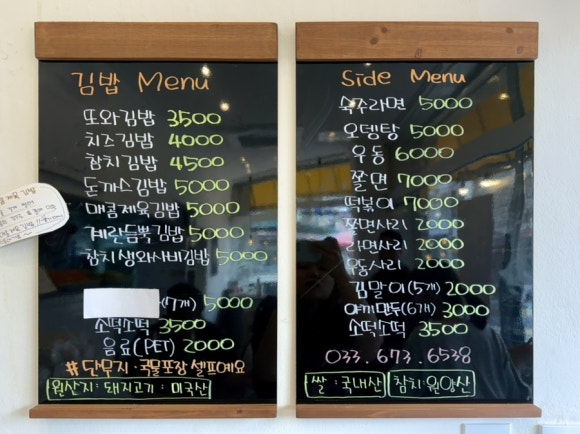 김밥 Menu
또와김밥 3500
치즈김밥 4000
참치김밥 4500
돈까스김밥 5000
매콤제육김밥 5000
계란듬뿍김밥 5000
참치생와사비김밥 5000
(7개) 5000
소떡소떡 3500
음료(PET) 2000
#단무지·국물포장 셀프예요
원산지: 돼지고기: 미국산
Side Menu
숙주라면 5000
오뎅탕 5000
우동 6000
쫄면 7000
떡볶이 7000
쫄면사리 2000
라면사리 2000
우동사리 2000
김말이(5개) 2000
야끼만두(6개) 3000
소떡소떡 3500
033.673.6538
쌀:국내산 참치:원양산